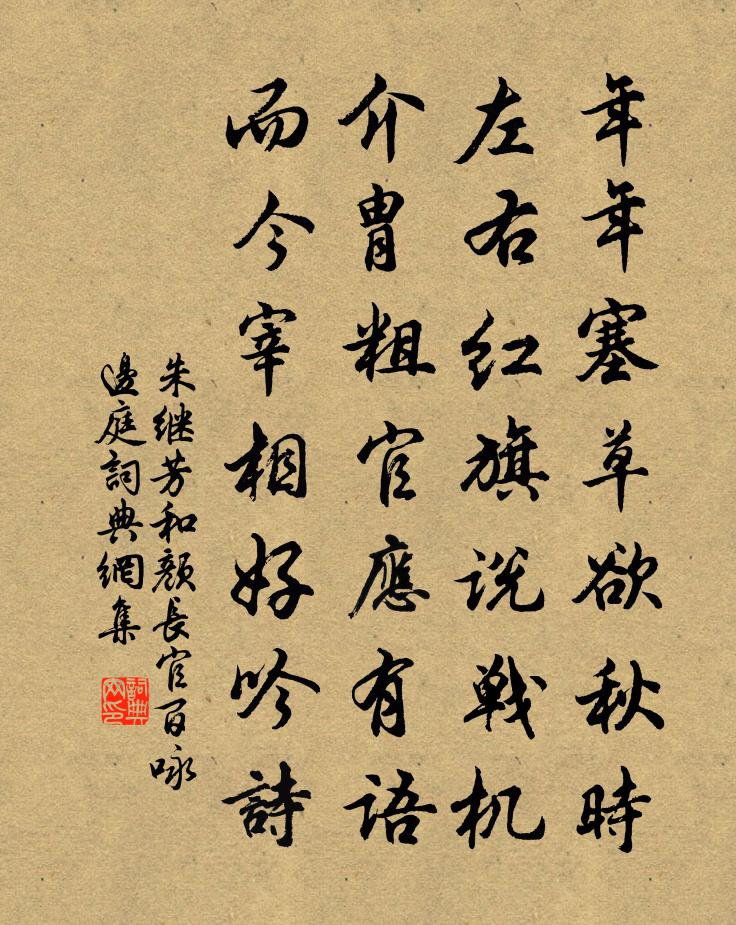 年年塞草欲秋時
左右红旗说戦机
介胄粗官應有语
而今宰相好吟詩
朱继芳和顔長官百咏
邊庭詞典網集
詞典网印